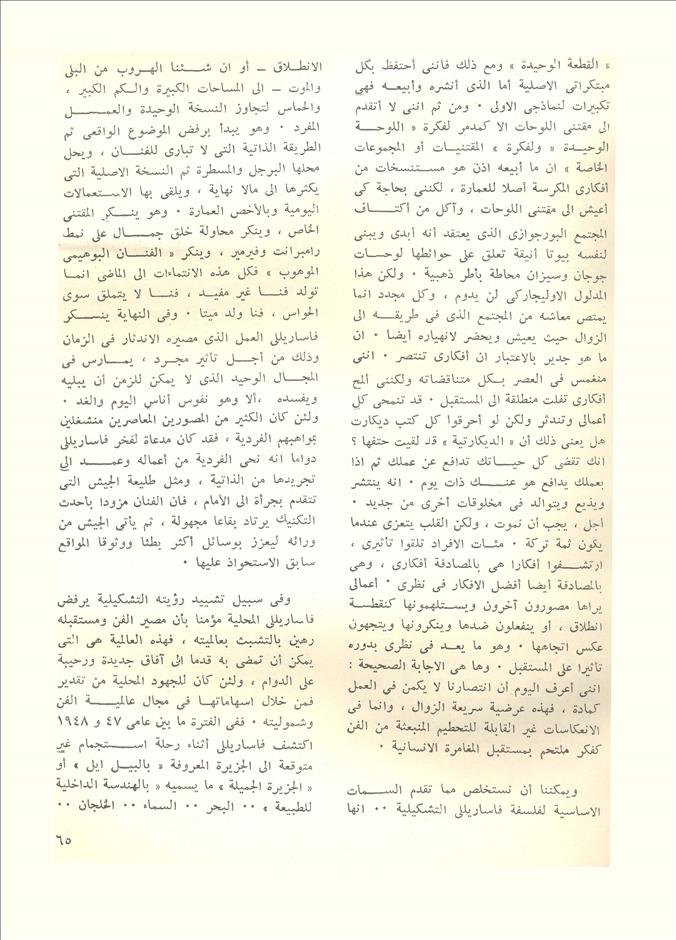 « القطعة الوحيدة » ومع ذلك فاننى أحتفظ بكل
مبتكراتى الاصلية أما الذى أنشره وأبيعه فهى
تكبيرات لنماذجى الاولى ٠ ومن ثم اننى لا أتقدم
الى مقتنى اللوحات الا كمدمر لفكرة « اللوحة
الوحيدة » ولفكرة « المقتنيات أو المجموعات
الخاصة » ان ما أبيعه اذن هو مستنسخات من
أفكارى المكرسة أصلا للعمارة ، لكننى بحاجة كى
أعيش الى مقتنى اللوحات ، وآكل من أكتاف
المجتمع البورجوازى الذى يعتقد أنه أبدى ويبنى
لنفسه بيوتا أنيقة تعلق على حوائطها لوحات
جوجان وسيزان محاطة بأطر ذهبية ٠ ولكن هذا
المدلول الاوليجاركى لن يدوم ، وكل مجدد انما
يمتص معاشه من المجتمع الذى فى طريقه الى
الزوال حيث يعيش ويحضر لانهياره أيضا ٠ ان
ما هو جدير بالاعتبار ان أفكارى تنتصر ٠ اننى
منغمس فى العصر بكل متناقضاته ولكننى ألمح
أفكارى تفلت منطلقة الى المستقبل ٠ قد تنمحى كل
أعمالى وتندثر ولكن لو أحرقوا كل كتب ديكارت
هل يعنى ذلك أن « الديكارتية » قد لقيت حتفها ؟
انك تقضى كل حياتك تدافع عن عملك ثم اذا
بعملك يدافع هو عنك ذات يوم ٠ انه ينتشر
ويذيع ويتوالد فى مخلوقات أخرى من جديد ٠
أجل ، يجب أن نموت ، ولكن القلب يتعزى عندما
يكون ثمة تركة ٠ مئات الافراد تلقوا تأثيرى ،
ارتشفوا أفكارا هى بالمصادفة أفكارى ، وهى
بالمصادفة أيضا أفضل الافكار فى نظرى ٠ أعمالى
يراها مصورون آخرون ويستلهمونها كنقطة
انطلاق ، أو ينفعلون ضدها وينكرونها ويتجهون
عكس اتجاهها ٠ وهو ما يعد فى نظرى بدوره
تأثيرا على المستقبل ٠ وها هى الاجابة الصحيحة :
اننى أعرف اليوم أن انتصارنا لا يكمن فى العمل
كمادة ، فهذه عرضية سريعة الزوال ، وانما فى
الانعكاسات غير القابلة للتحطيم المنبعثة من الفن
كفكر ملتحم بمستقبل المغامرة الانسانية ٠
ويمكننا أن نستخلص مما تقدم السمات
الاساسية لفلسفة فاساريللى التشكيلية ٠٠ انها
الانطلاق ــ أو ان شئنا الهروب من البلى
والموت ــ الى المساحات الكبيرة والكم الكبير ،
والحماس لتجاوز النسخة الوحيدة والعمل
المفرد ٠ وهو يبدأ برفض الموضوع الواقعى ثم
الطريقة الذاتية التى لا تبارى للفنان ، ويحل
محلها البرجل والمسطرة ثم النسخة الاصلية التى
يكثرها الى مالا نهاية ، ويلقى بها الاستعمالات
اليومية وبالأخص العمارة ٠ وهو ينكر المقتنى
الخاص ، وينكر محاولة خلق جمال على نمط
رامبرانت وفيرمير ، وينكر « الفنان البوهيمى
الموهوب » فكل هذه الانتماءات الى الماضى انما
تولد فنا غير مفيد ، فنا لا يتملق سوى
الحواس ، فنا ولد ميتا ٠ وفى النهاية ينكر
فاساريللى العمل الذى مصيره الاندثار فى الزمان
وذلك من أجل تأثير مجرد ، يمارس فى
المجال الوحيد الذى لا يمكن للزمن أن يبليه
ويفسده ،ألا وهو نفوس أناس اليوم والغد ٠
ولئن كان الكثير من المصورين المعاصرين منشغلين
بمواهبهم الفردية ، فقد كان مدعاة لفخر فاساريللى
دواما انه نحى الفردية من أعماله وعمد الى
تجريدها من الذاتية ، ومثل طليعة الجيش التى
تتقدم بجرأة الى الأمام ، فان الفنان مزودا بأحدث
التكنيك يرتاد بقاعا مجهولة ، ثم يأتى الجيش من
ورائه ليعزز بوسائل أكثر بطئا ووثوقا المواقع
سابق الاستحواذ عليها ٠
وفى سبيل تشييد رؤيته التشكيلية يرفض
فاساريللى المحلية مؤمنا بأن مصير الفن ومستقبله
رهين بالتشبث بعالميته ، فهذه العالمية هى التى
يمكن أن تمضى به قدما الى آفاق جديدة ورحيبة
على الدوام ، ولئن كان للجهود المحلية من تقدير
فمن خلال اسهاماتها فى مجال عالمية الفن
وشموليته ٠ ففى الفترة ما بين عامى ٤٧ و ١٩٤٨
اكتشف فاساريللى أثناء رحلة استجمام غير
متوقعة الى الجزيرة المعروفة « بالبيل ايل » أو
« الجزيرة الجميلة » ما يسميه « بالهندسة الداخلية
للطبيعة » ٠٠ البحر ٠٠ السماء ٠٠ الخلجان ٠٠
٦٥